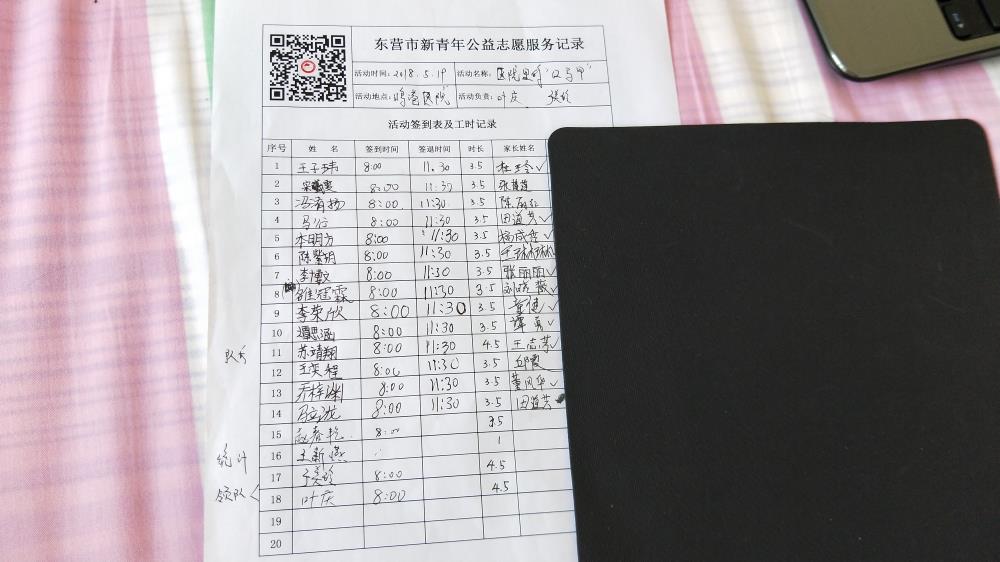 东营市新青年公益志愿服务记录
活动时间:2018.5.19 活动名称:医院里的"红马甲"
活动地点:鸿港医院 活动负责:叶庆
活动签到表及工时记录
序号 姓 名 签到时间 签退时间 时长 家长姓名
1 王子玮 8:00 11.30 3.5 ✓
2 8:00 11:30 3.5 张莲莲
3 冯有扬 8:00 11:30 3.5
4 马行 8:00 11:30 3.5 田道芸✓
5 李明方 8:00 11:30 3.5 ✓
6 陈紫玥 8:00 11:30 3.5
7 李博文 8:00 11:30 3.5 张丽丽✓
8 冠霖 8:00 11:30 3.5 刘晓薇✓
9 李荣欣 8:00 11:30 3.5 童健✓
10 谭思涵 8:00 11:30 3.5 谭勇✓
队长 11 苏靖翔 8:00 11:30 4.5 王志芳✓
12 王奕程 8:00 11:30 3.5 邱霞✓
13 乔梓渊 8:00 11:30 3.5 董风华✓
14 8:00 11:30 3.5 田道芸
15 赵春艳 8:00 3.5
统计 16 王新燕 1
17 8:00 4.5
领队 18 叶庆 8:00 4.5
19
20